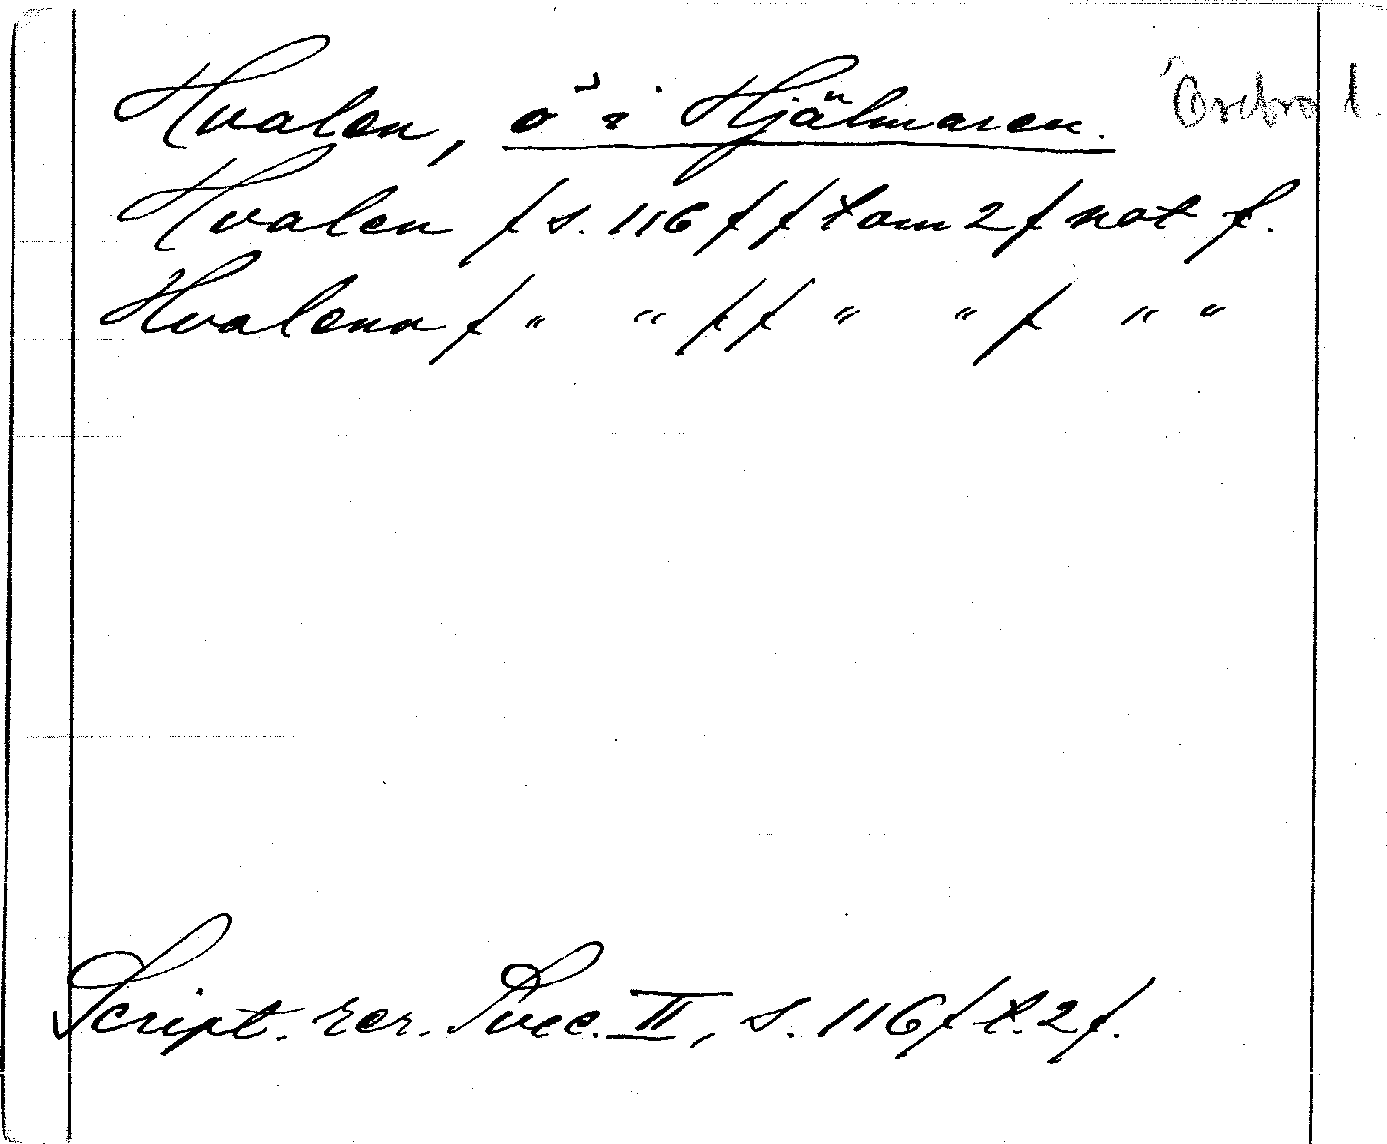 Hvalen, ö i Hjälmaren. Örebro l.
Hvalen / s. 116 / / tom 2 / not f.
Hvalenn / " " / / " " / " "
Script. rer. Svec. II, s. 116 / t. 2 /.